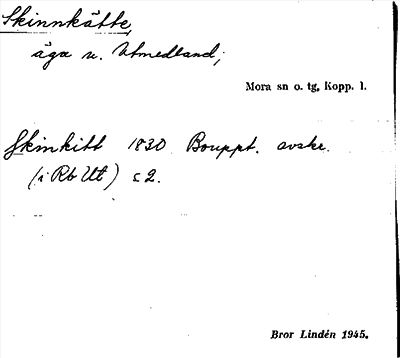 Skinnkätte,
äga u. Utmedland;
Mora sn o. tg, Kopp. l.
Skinkitt 1830 Bouppt. avskr.
(i Rb Ut) c 2.
Bror Lindén 1945.